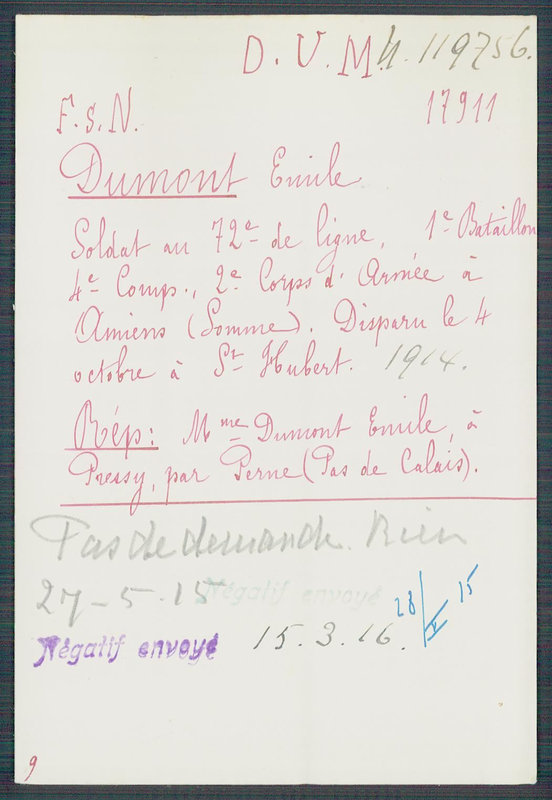 D. V. M. H. 119756.
F. s. N. 17911
Dumont Emile
Soldat au 72e de ligne, 1e Bataillon
4e Comp., 2e Corps d'Armée à
Amiens (Somme). Disparu le 4
octobre à St Hubert. 1914.
Rép: Mme Dumont Emile, à
Pressy, par Perne (Pas de Calais).
Pas de demande. Rien
27-5.15 Négatif envoyé
28/V 15
Négatif envoyé 15.3.16.
9